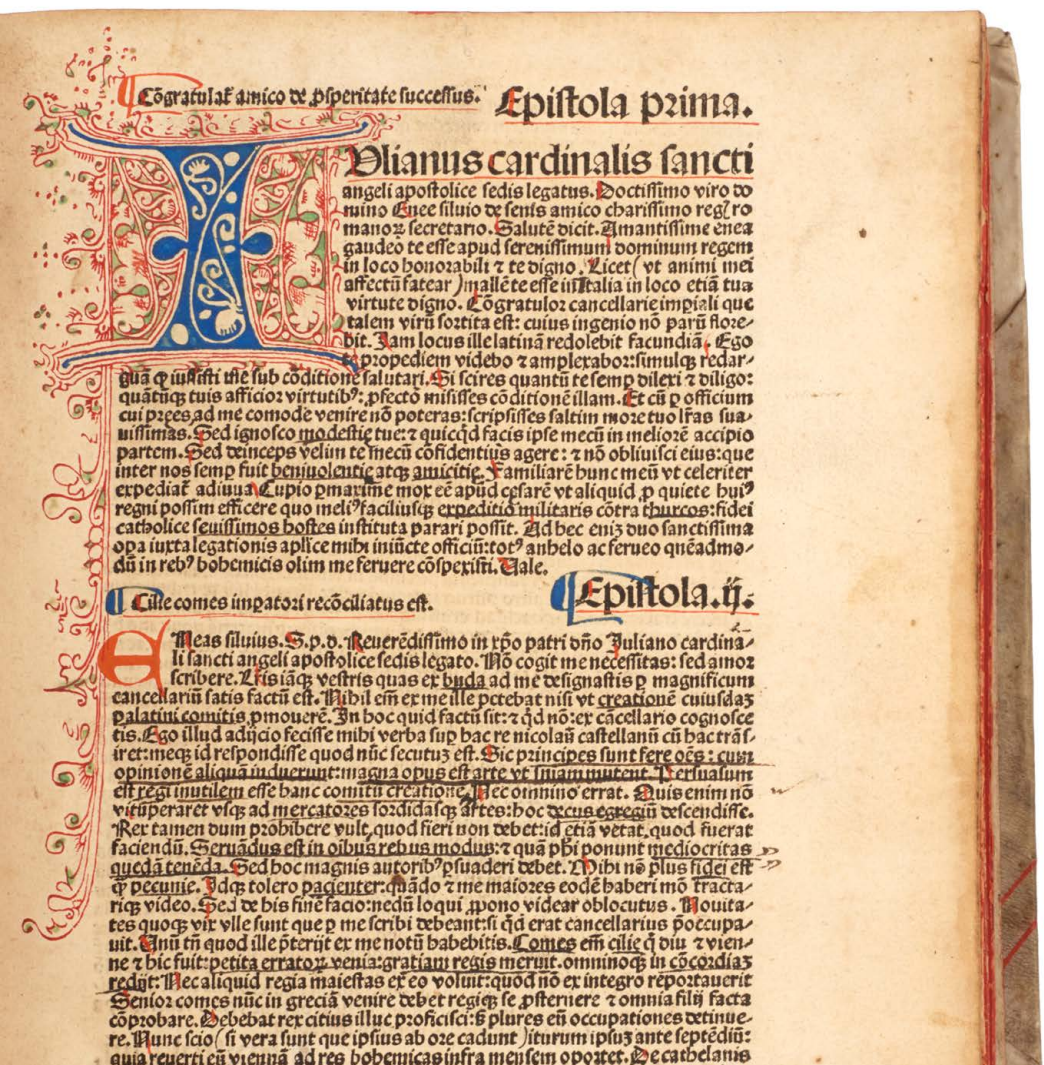 Cõgratulat᷑ amico de ꝓsperitate successus. Epistola prima.
IVlianus cardinalis sancti
angeli apostolice sedis legatus. Doctissimo viro do
mino Enee siluio de senis amico charissimo reg ro
manoꝝ secretario. Salutē dicit. Amantissime enea
gaudeo te esse apud serenissimum dominum regem
in loco honorabili ⁊ te digno. Licet (vt animi mei
affectū fatear) mallē te esse in Italia in loco etiā tua
virtute digno. Cōgratulor cancellarie imꝑiali que
talem virū sortita est: cuius ingenio nō parū flore⸗
bit. Jam locus ille latinā redolebit facundiā. Ego
te propediem videbo ⁊ amplexabor: simulqꝫ redar⸗
guā ꝙ iussisti me sub cōditione salutari. Si scires quantū te semꝑ dilexi ⁊ diligo:
quātūqꝫ tuis afficior virtutibꝰ: ꝓfecto misisses cōditionē illam. Et cū ꝑ officium
cui prees ad me comode venire nō poteras: scripsisses saltim more tuo lr̄as sua⸗
uissimas. Sed ignosco modestie tue: ⁊ quicqd facis ipse mecū in meliorē accipio
partem. Sed deinceps velim te mecū cōfidentius agere: ⁊ nō obliuisci eius: que
inter nos semꝑ fuit beniuolentie atqꝫ amicitie. Familiarē hunc meū vt celeriter
expediat᷑ adiuua. Cupio ꝑmaxime mox eē apud cesarē vt aliquid ꝓ quiete huiꝰ
regni possim efficere quo meliꝰ faciliusqꝫ expeditio militaris cōtra thurcos: fidei
catholice seuissimos hostes instituta parari possit. Ad hec eniꝫ duo sanctissima
oꝑa iuxta legationis apl̄ice mihi iniūcte officiū: totꝰ anhelo ac ferueo quēadmo⸗
dū in rebꝰ bohemicis olim me feruere cōspexisti. Vale.
Cilie comes imꝑatori recōciliatus est. Epistola.ij.
ENeas siluius. S.p.d. Reuerēdissimo in xp̄o patri dn̄o Juliano cardina⸗
li sancti angeli apostolice sedis legato. Nō cogit me necessitas: sed amor
scribere. Lr̄is iāqꝫ vestris quas ex buda ad me designastis ꝑ magnificum
cancellariū satis factū est. Nihil em̄ ex me ille petebat nisi vt creationē cuiusdaꝫ
palatini comitis ꝓmouerē. In hoc quid factū sit: ⁊ qd nō: ex cācellario cognosce
tis. Ego illud adijcio fecisse mihi verba suꝑ hac re nicolaū castellanū cū hac trās⸗
iret: meqꝫ id respondisse quod nūc secutuꝫ est. Sic principes sunt fere oēs: cum
opinionē aliquā induerunt: magna opus est arte vt sniam mutent. Persuasum
est regi inutilem esse hanc comitū creationē. Nec omnino errat. Quis enim nō
vituperaret vsqꝫ ad mercatores sordidasqꝫ artes: hoc decus egregiū descendisse.
Rex tamen dum prohibere vult, quod fieri non debet: id etiā vetat, quod fuerat
faciendū. Seruādus est in oībus rebus modus: ⁊ quā phi ponunt mediocritas
quedā tenēda. Sed hoc magnis autoribꝰ ꝑsuaderi debet. Mihi nō plus fidei est
q̄ pecunie. Idqꝫ tolero pacienter: quādo ⁊ me maiores eodē haberi mō tracta⸗
riqꝫ video. Sed de his finē facio: nedū loqui ꝓpono videar oblocutus. Nouita⸗
tes quoqꝫ vix vlle sunt que ꝑ me scribi debeant: si qd erat cancellarius p̄occupa⸗
uit. Unū tn̄ quod ille p̄terijt ex me notū habebitis. Comes em̄ cilie q̄ diu ⁊ vien⸗
ne ⁊ hic fuit: petita erratoꝝ venia: gratiam regis meruit. omninoqꝫ in cōcordiaꝫ
redijt: Nec aliquid regia maiestas ex eo voluit: quod nō ex integro reportauerit
Senior comes nūc in greciā venire debet regiqꝫ se ꝓsternere ⁊ omnia filij facta
cōprobare. Debebat rex citius illuc proficisci: sꝫ plures eū occupationes detinue⸗
re. Nunc scio (si vera sunt que ipsius ab ore cadunt) iturum ipsuꝫ ante septēdiū:
quia reuerti eū viennā ad res bohemicas infra mensem oportet. De cathelanis